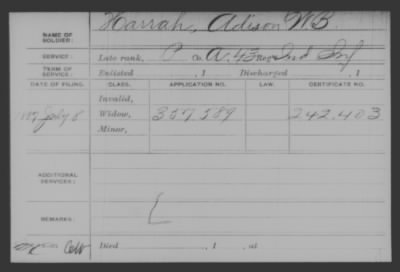 NAME OF SOLDIER: Harrah, Adison W.B.
SERVICE: Late rank, P Co. A, 43 Reg't Ind Inf
TERM OF SERVICE: Enlisted , 1 Discharged , 1
DATE OF FILING. CLASS. APPLICATION NO. LAW. CERTIFICATE NO.
Invalid,
1887 July 8 Widow, 357.589 242.403
Minor,
ADDITIONAL SERVICES:
REMARKS:
Died , 1 , at